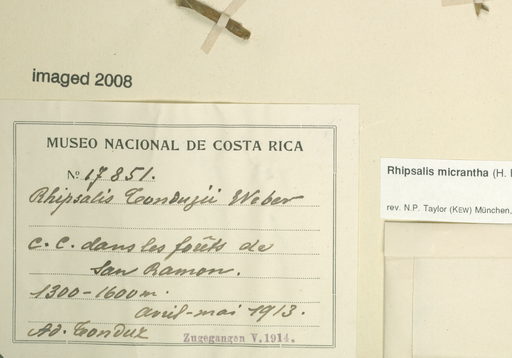 imaged 2008
MUSEO NACIONAL DE COSTA RICA
No 17851.
Rhipsalis Tonduzii Weber
C. C. dans les forêts de
San Ramon.
1300-1600 m.
avril-mai 1913.
Ad. Tonduz
Zugegangen V.1914.
Rhipsalis micrantha (H.
rev. N.P. Taylor (KEW) München,